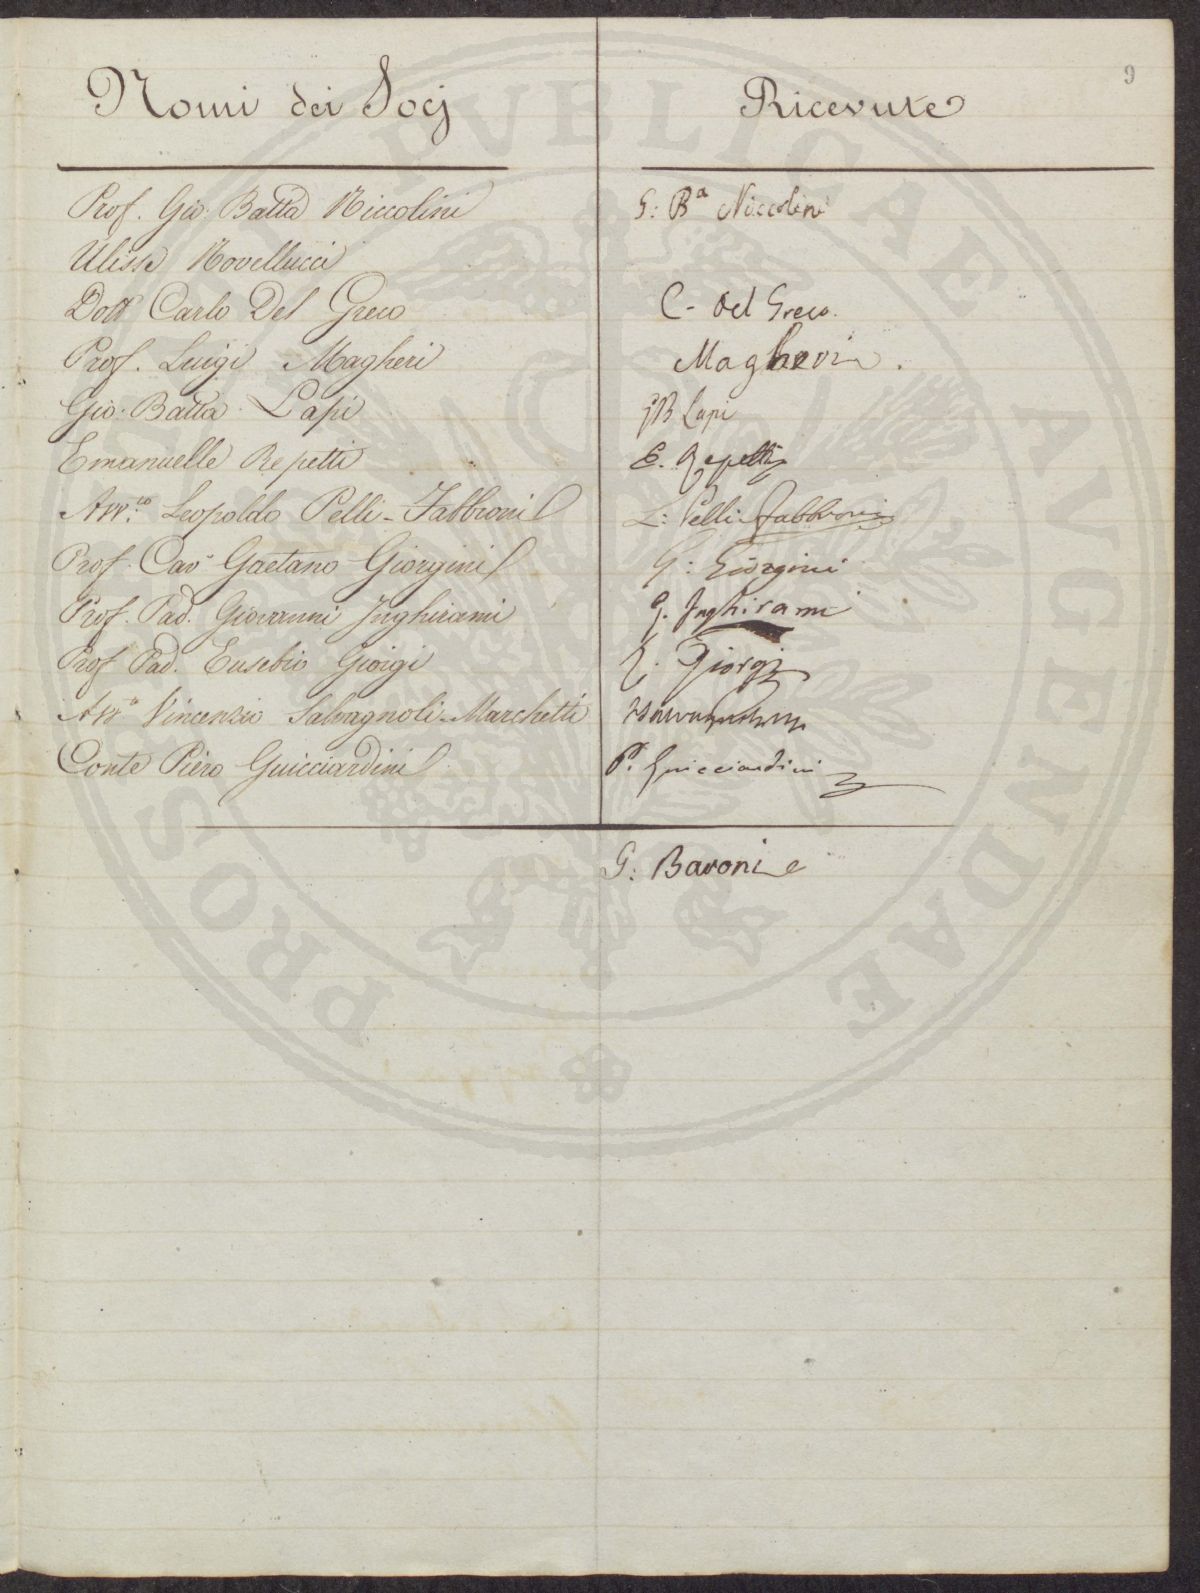 9
Nomi dei Socj Ricevute
Prof. Gio. Batta Niccolini G: Ba Niccolini
Ulisse Novellucci
Dott Carlo Del Greco C- Del Greco.
Prof. Luigi Magheri Magheri.
Gio. Batta Lapi GB Lapi
Emanuelle Repetti E. Repetti
Avv.to Leopoldo Pelli-Fabbroni L: Pelli Fabbroni
Prof. Cav Gaetano Giorgini G: Giorgini
Prof. Pad. Giovanni Inghirami G. Inghirami
Prof Pad. Eusebio Giorgi E. Giorgi
Avv Vincenzio Salvagnoli-Marchetti
Conte Piero Guicciardini P. Guicciardini
G: Baroni
PROSPERITATI PVBLICAE AVGENDAE